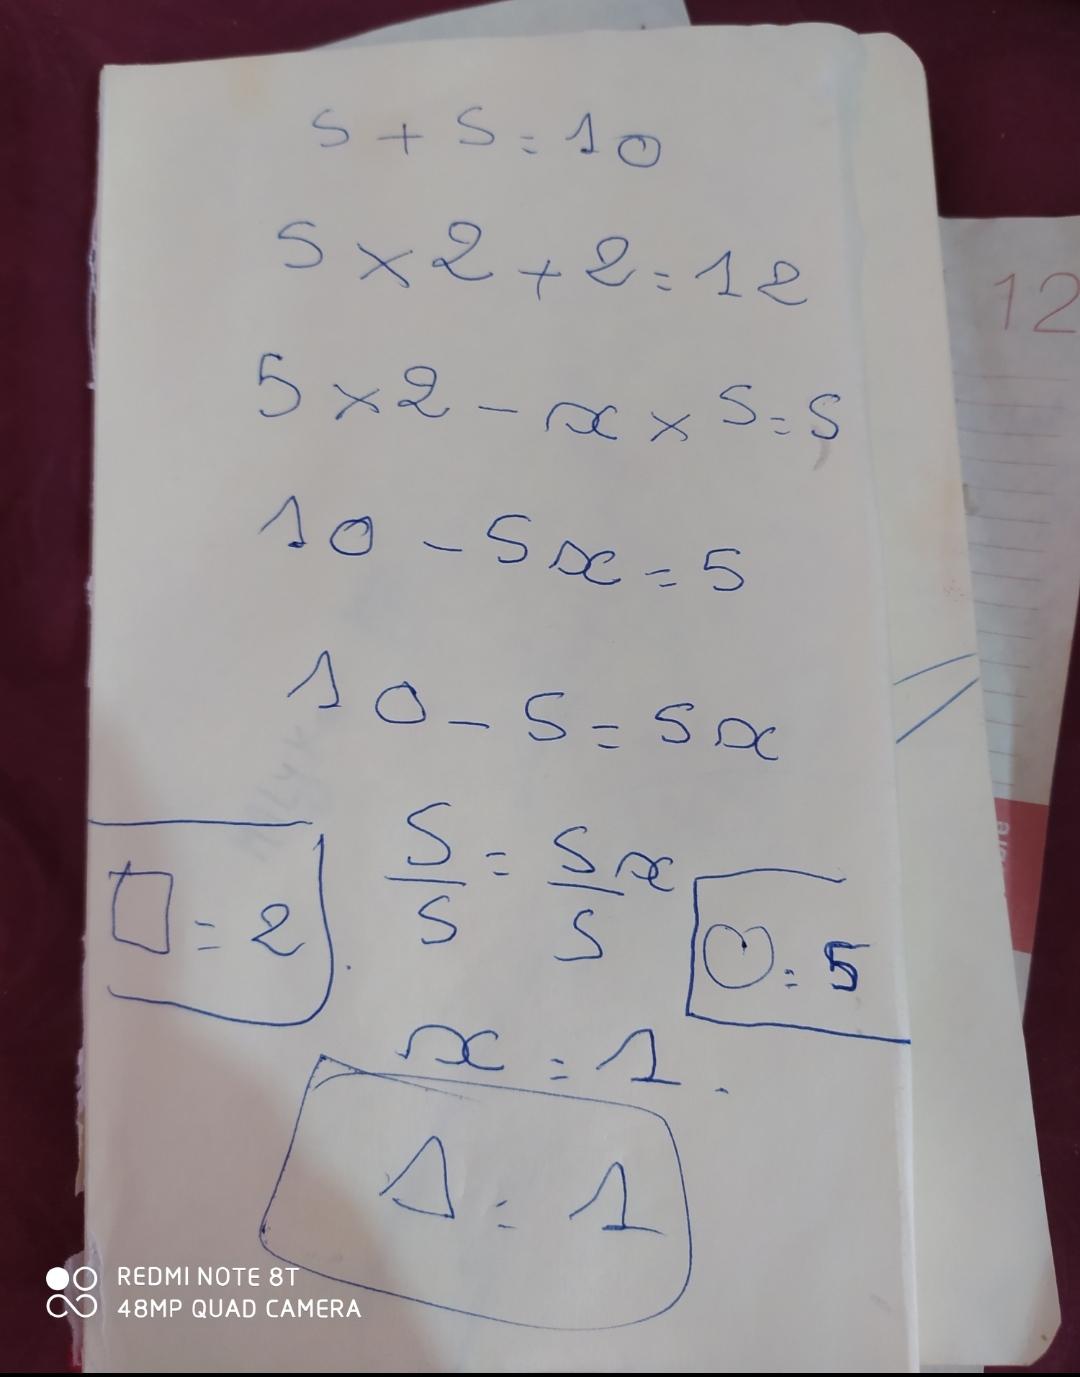 5 + 5 = 10
5 × 2 + 2 = 12
5 × 2 - x × 5 = 5
10 - 5x = 5
10 - 5 = 5x
5/5 = 5x/5
□ = 2
○ = 5
x = 1.
△ = 1
12
REDMI NOTE 8T
48MP QUAD CAMERA